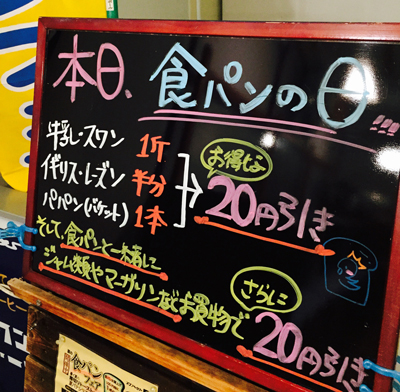 本日、食パンの日!!!!
牛乳・スワン 1斤
イギリス・レーズン 半分
パパン(バケット) 1本
お得だよ
20円引き
そして、食パンと一緒に
ジャム類やマーガリンなどお買物で
さらに
20円引き
食パン